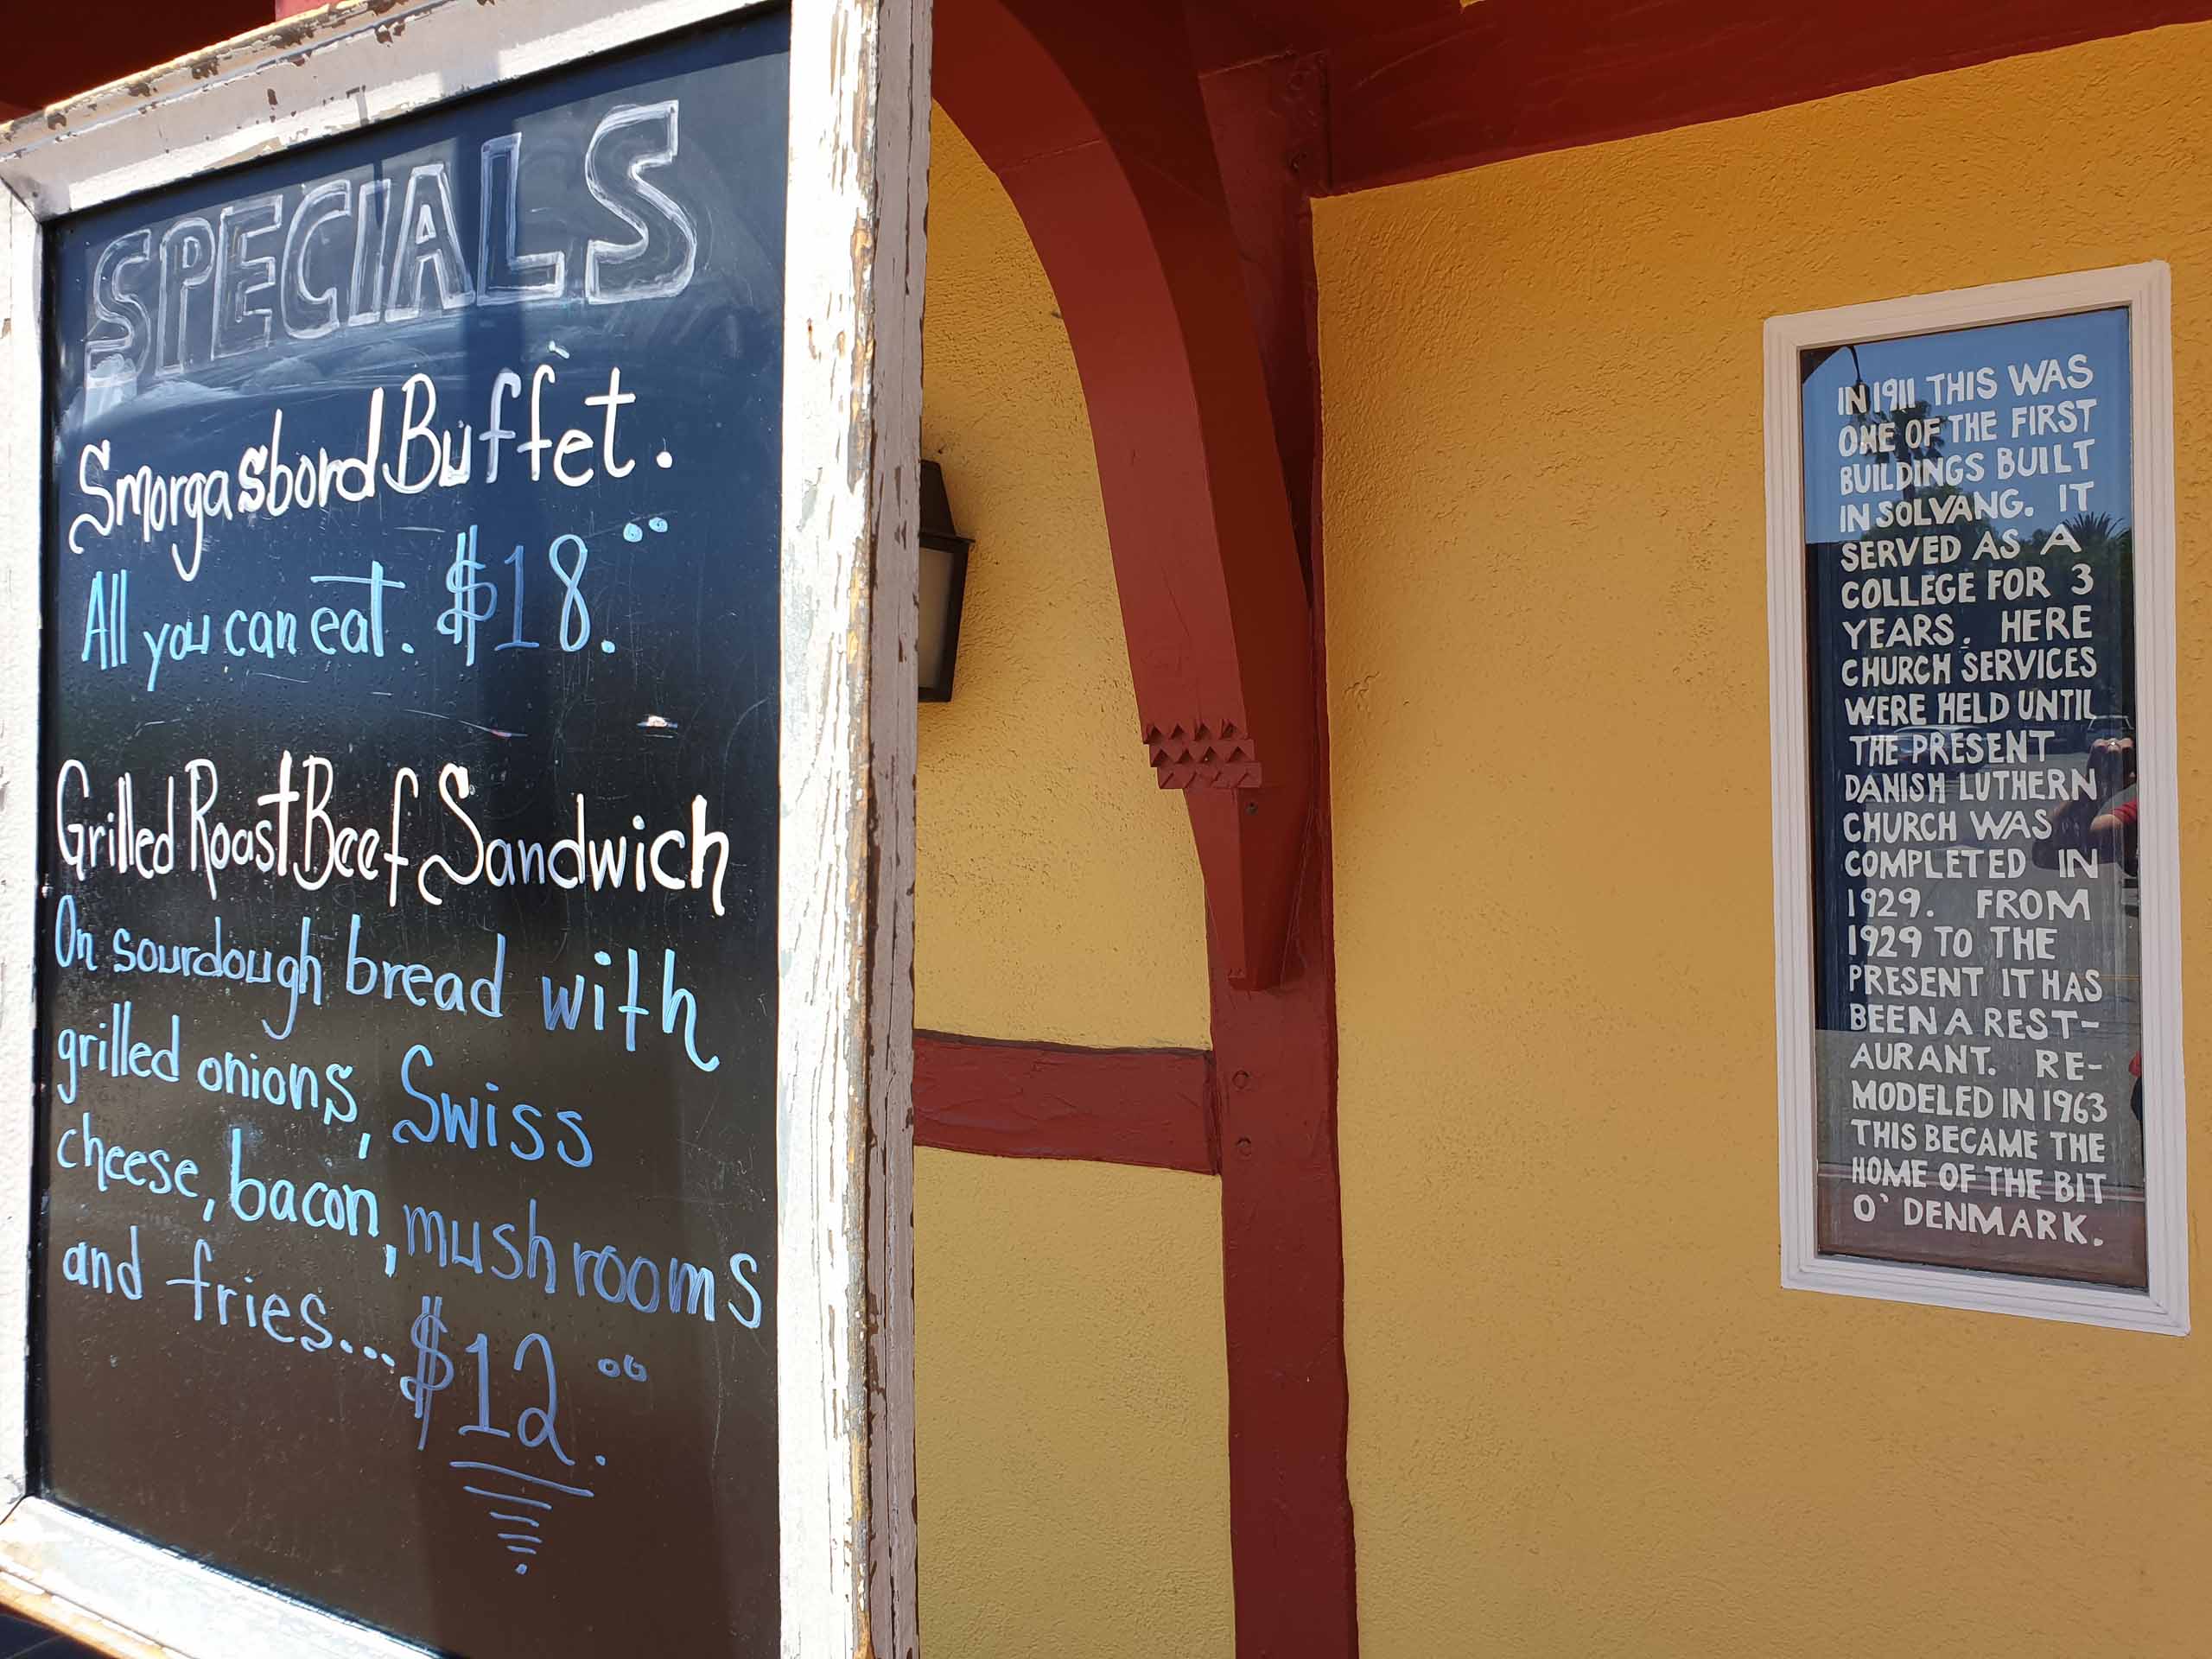 SPECIALS
Smorgasbord Buffet.
All you can eat. $18.00
Grilled Roast Beef Sandwich
On sourdough bread with
grilled onions, Swiss
cheese, bacon, mushrooms
and fries... $12.00
IN 1911 THIS WAS
ONE OF THE FIRST
BUILDINGS BUILT
IN SOLVANG. IT
SERVED AS A
COLLEGE FOR 3
YEARS. HERE
CHURCH SERVICES
WERE HELD UNTIL
THE PRESENT
DANISH LUTHERN
CHURCH WAS
COMPLETED IN
1929. FROM
1929 TO THE
PRESENT IT HAS
BEEN A REST-
AURANT. RE-
MODELED IN 1963
THIS BECAME THE
HOME OF THE BIT
O' DENMARK.